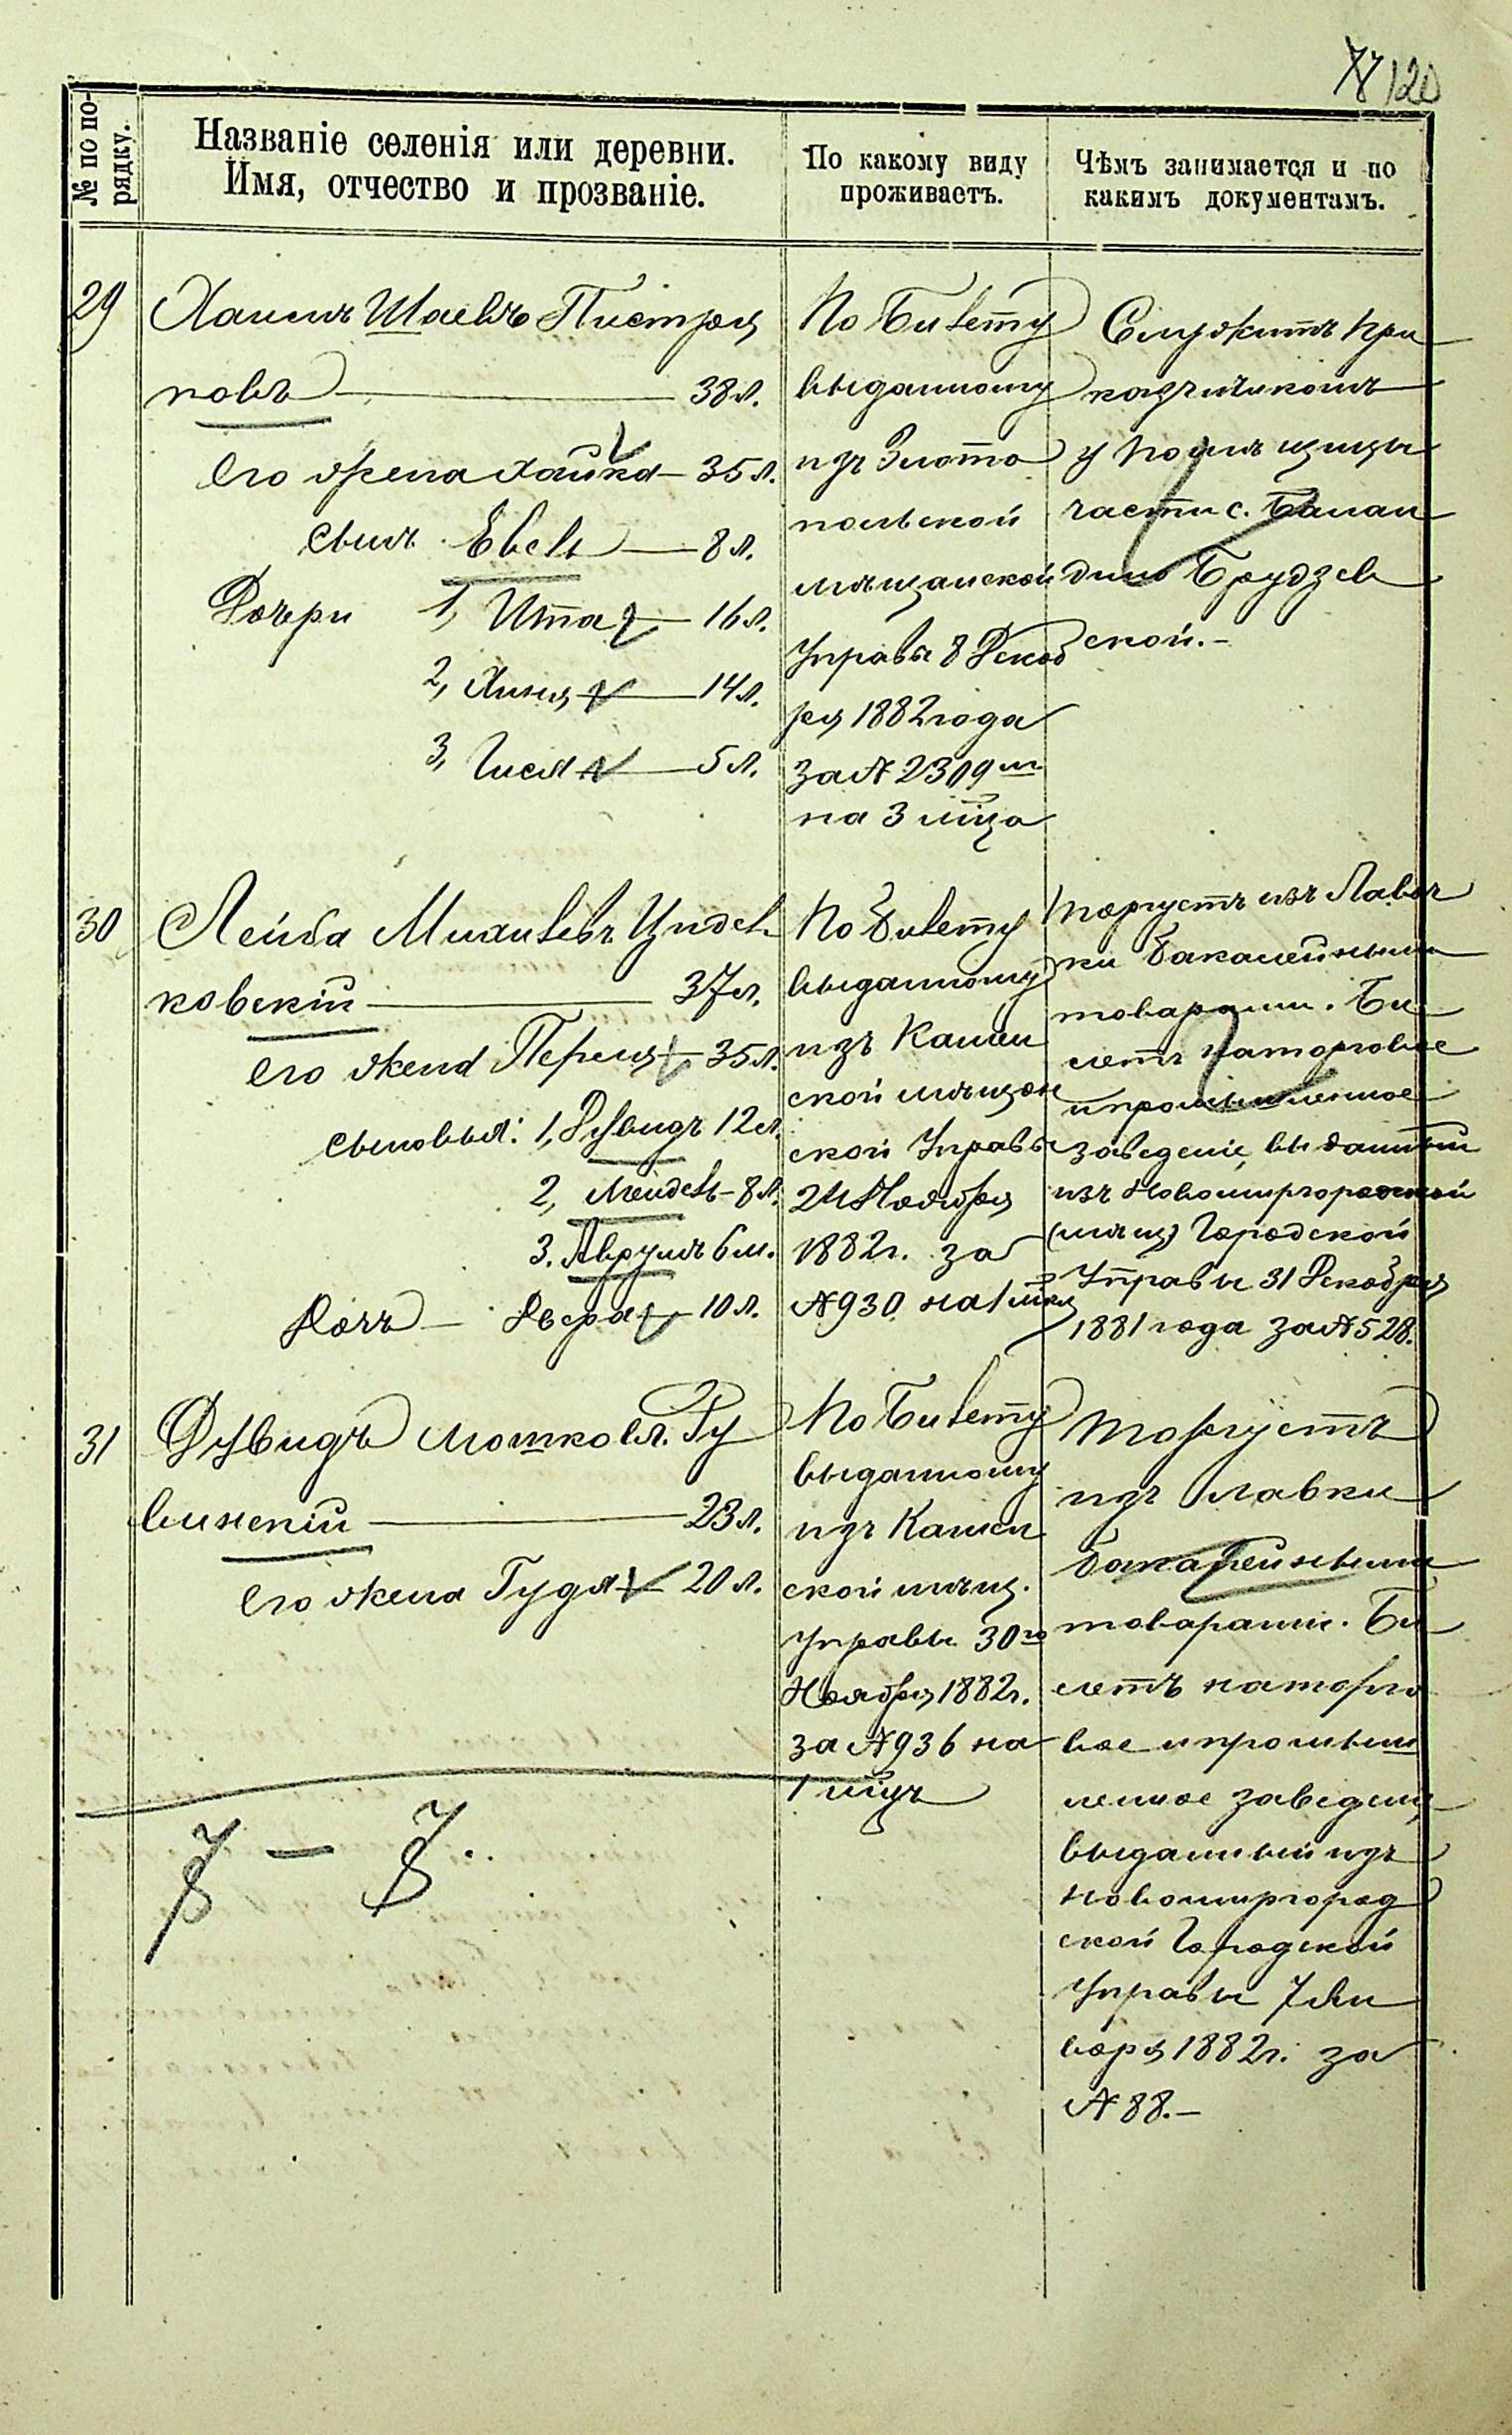 120
№ по по-
рядку.
Названіе селенія или деревни.
Имя, отчество и прозваніе.
По какому виду
проживаетъ.
Чѣмъ занимается и по
какимъ документамъ.
29
Хаимъ Шаевъ Пистря
ковъ — 38 л.
его жена Хайка — 35 л.
сынъ Евель — 8 л.
Дочери 1, Ита — 16 л.
2, Хиня — 14 л.
3, Гися — 5 л.
По билету
выданному
изъ Злато
польской
мѣщанской
Управы 8 Декаб
ря 1882 года
за № 2309 мъ
на 3 мца
Служитъ при
казчикомъ
у помѣщицы
части с.
дино Брудзев
ской.-
30
Лейба Михилевъ Цидел
ковскій — 37 л.
его жена Перля — 35 л.
сыновья: 1, Дувидъ 12 л.
2, Мендель - 8 л.
3. Аврумъ 6 л.
Дочь — Двера — 10 л.
По билету
выданному
изъ Камен
ской мѣщан
ской Управы
24 Ноября
1882 г. за
№ 930 на 1 мцъ
Торгуетъ изъ Лавоч
ки бакалейными
товарами. Би
летъ на торговое
и промышленное
заведеніе, выданный
изъ Новомиргородской
(мѣщ) Городской
Управы 31 Декабря
1881 года за № 528.
31
Дувидъ Мошковъ Ру
винскій — 23 л.
его жена Гудя — 20 л.
По билету
выданному
изъ Камен
ской мѣщ.
Управы 30 го
Ноября 1882 г.
за № 936 на
1 мцъ
Торгуетъ
изъ лавки
бакалейными
товарами. Би
летъ на торго
вое и промыш
ленное заведеніе
выданный изъ
Новомиргород
ской Городской
Управы 7 Ян
варя 1882 г. за
№ 88.—